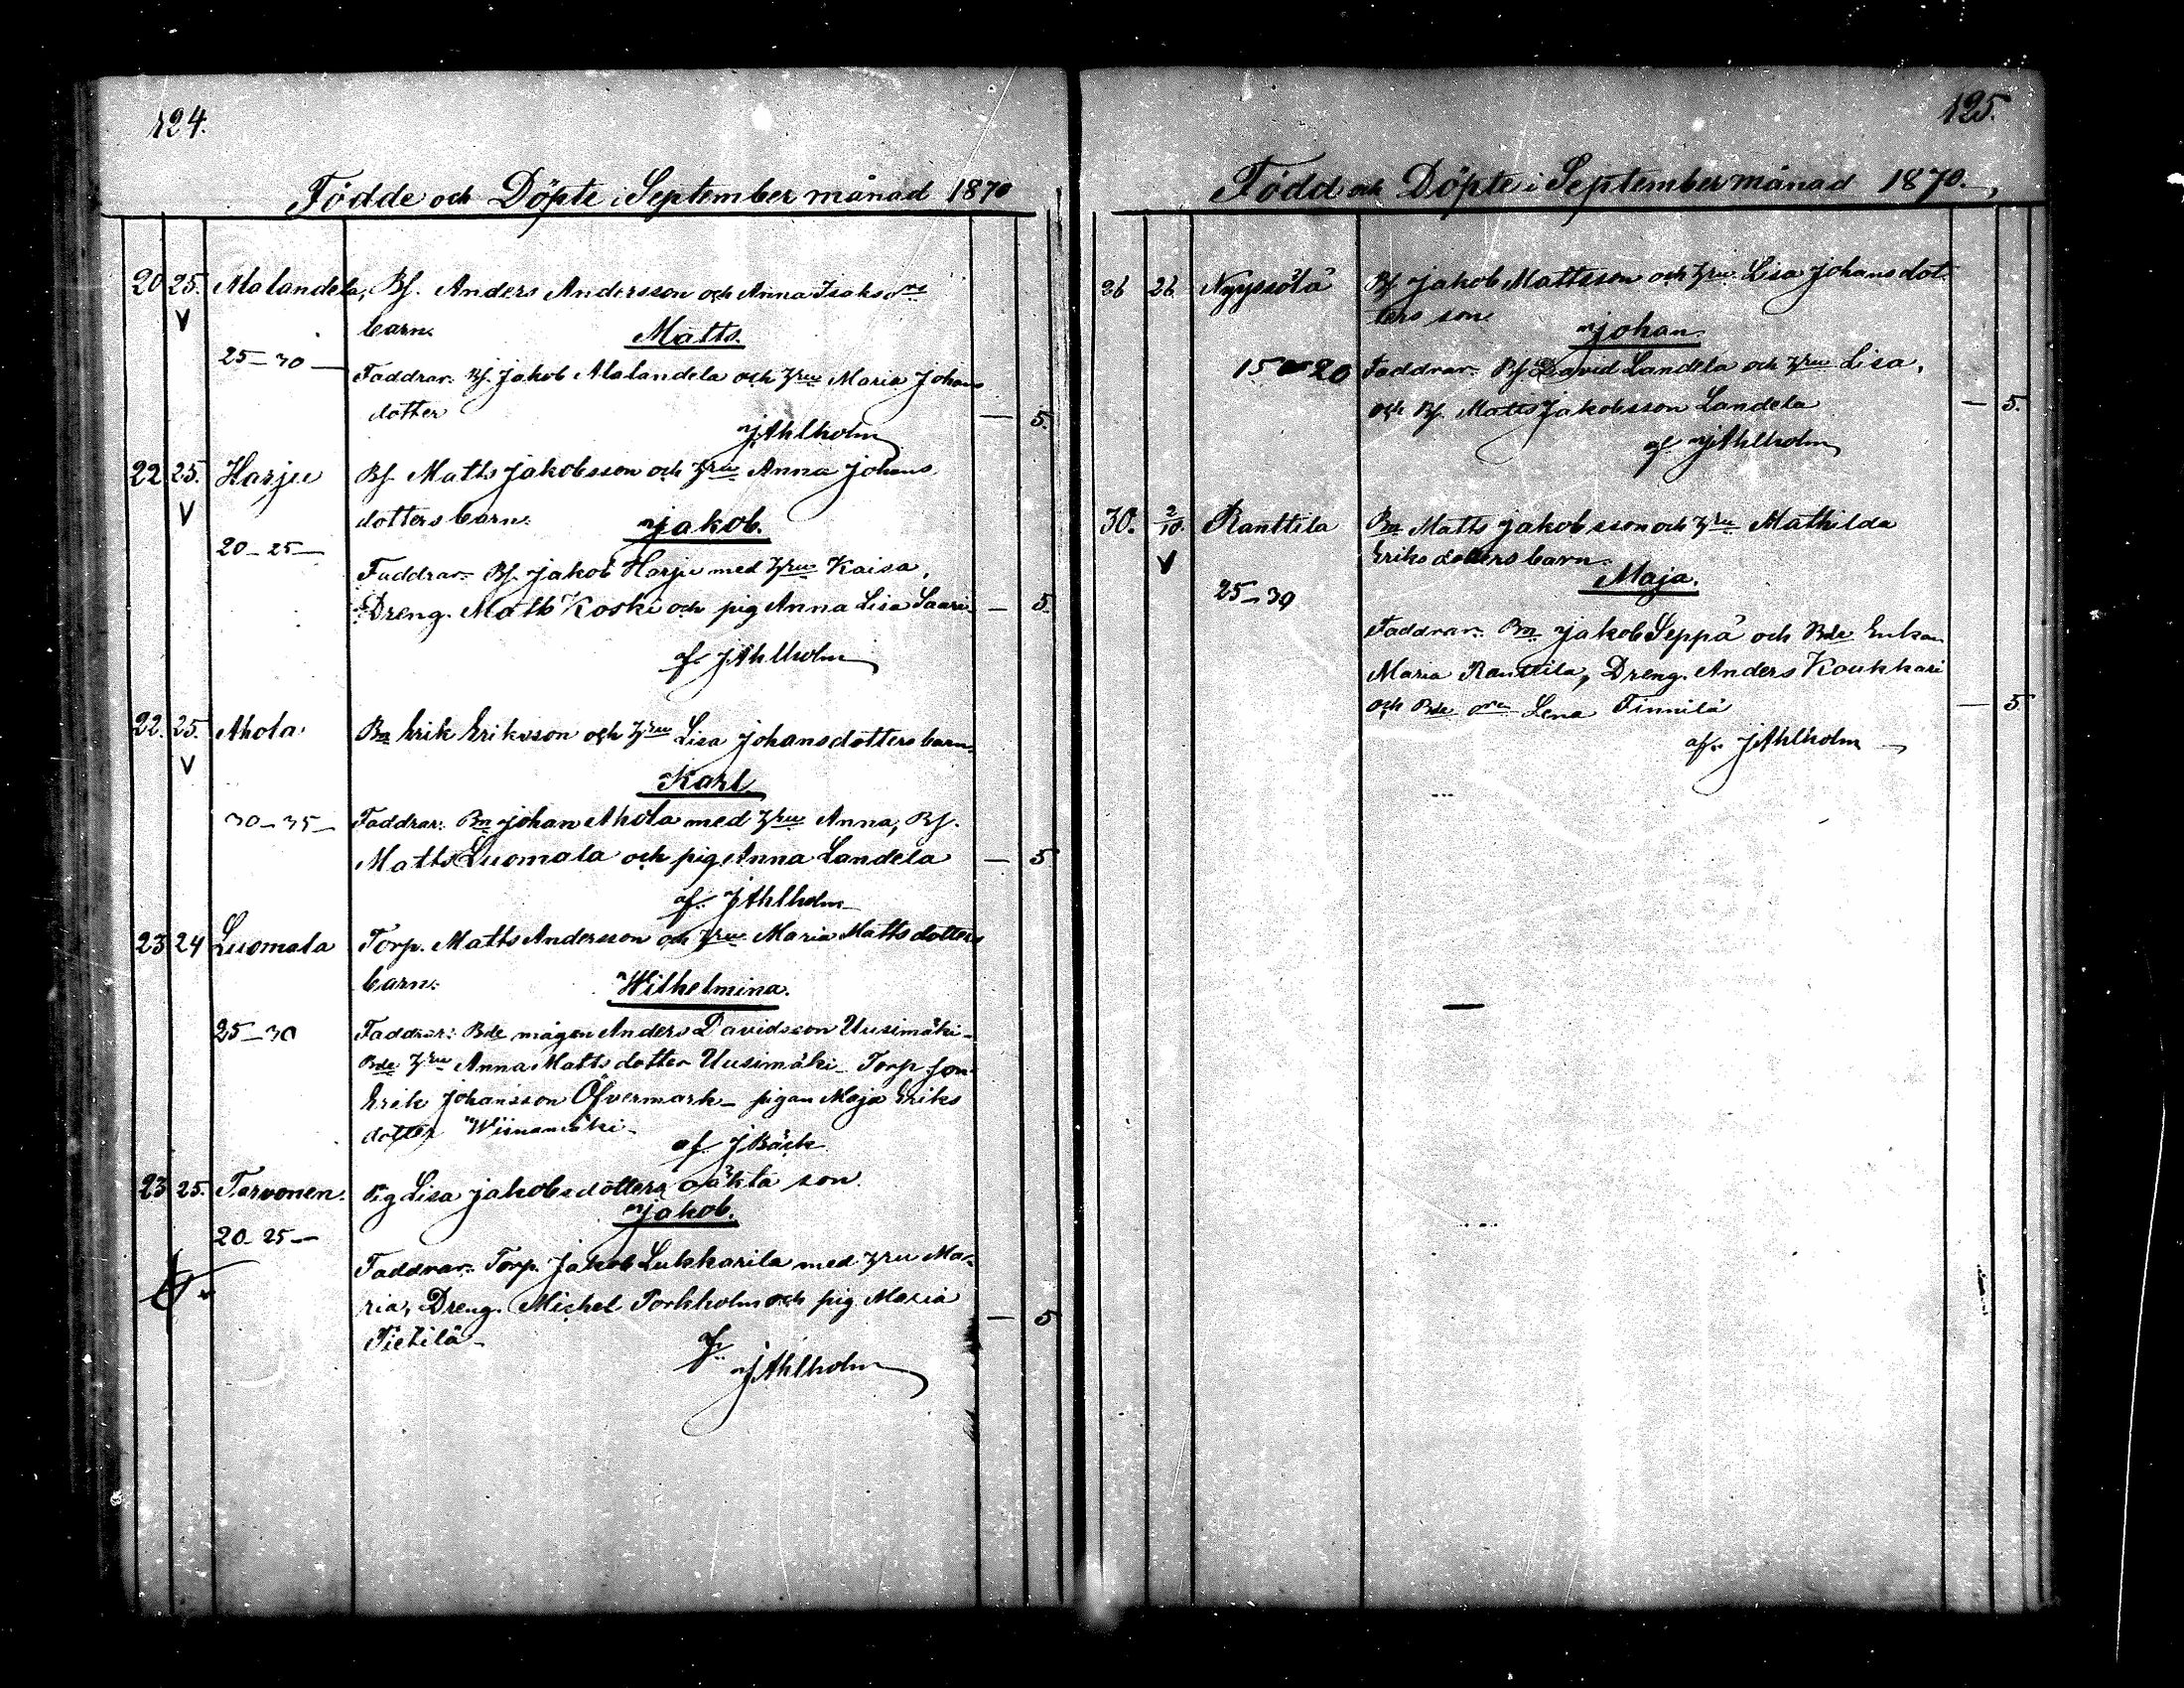 124.
Födde och Döpte i September månad 1870
20 25. Alalandela, Bf. Anders Andersson och Anna Isaksdrs
V barn. Matts.
25-30 — Faddrar: Bf. Jakob Alalandela och hru Maria Johans
dotter — 5.
JAhlholm
22 25. Harju Bf. Matts Jakobsson och hru Anna Johans
V dotters barn. Jakob.
20-25— Faddrar: Bf. Jakob Harju med hru Kaisa,
Dreng. Matts Koski och pig Anna Lisa Saari — 5.
af JAhlholm
22. 25. Ahola Bn Erik Eriksson och hru Lisa Johansdotters barn.
V Karl.
30-35- Faddrar: Bn Johan Ahola med hru Anna, Bf.
Matts Luomala och pig Anna Landela — 5
af: JAhlholm
23 24 Luomala Torp. Matts Andersson och hru Maria Mattsdotters
barn. Wilhelmina.
25-30 Faddrar: Bde mågen Anders Davidsson Uusimäki-
Bde hru Anna Mattsdotter Uusimäki- Torp. son
Erik Johansson Öfvermark- pigan Maja Eriks
dotter Wiinamäki-
af JBäck
23 25. Tarvonen. Pig Lisa Jakobsdotters oäkta son.
Jakob.
20-25—
Faddrar: Torp. Jakob Lukkarila med hru Ma-
ria, Dreng. Michel Torkholm och pig Maria — 5
Pietilä- af
JAhlholm
125.
Född och Döpte i September månad 1870.
26 26 Nyyssölä Bf. Jakob Mattsson och hru Lisa Johansdot
ters son. Johan.
15-20 Faddrar: Bf. David Landela och hru Lisa,
och Bf. Matts Jakobsson Landela — 5.
af JAhlholm
30. 2/10. Ranttila Bn Matts Jakobsson och hru Mathilda
V Eriksdotters barn.
Maja.
25-30
Faddrar: Bn Jakob Seppä och Bde Enkan
Maria Ranttila, Dreng. Anders Koukkari
och Bde Lena Finnilä — 5
af: JAhlholm